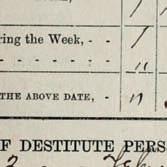 ring the Week, - - 1
- - - - - "
THE ABOVE DATE, - "
OF DESTITUTE PERS